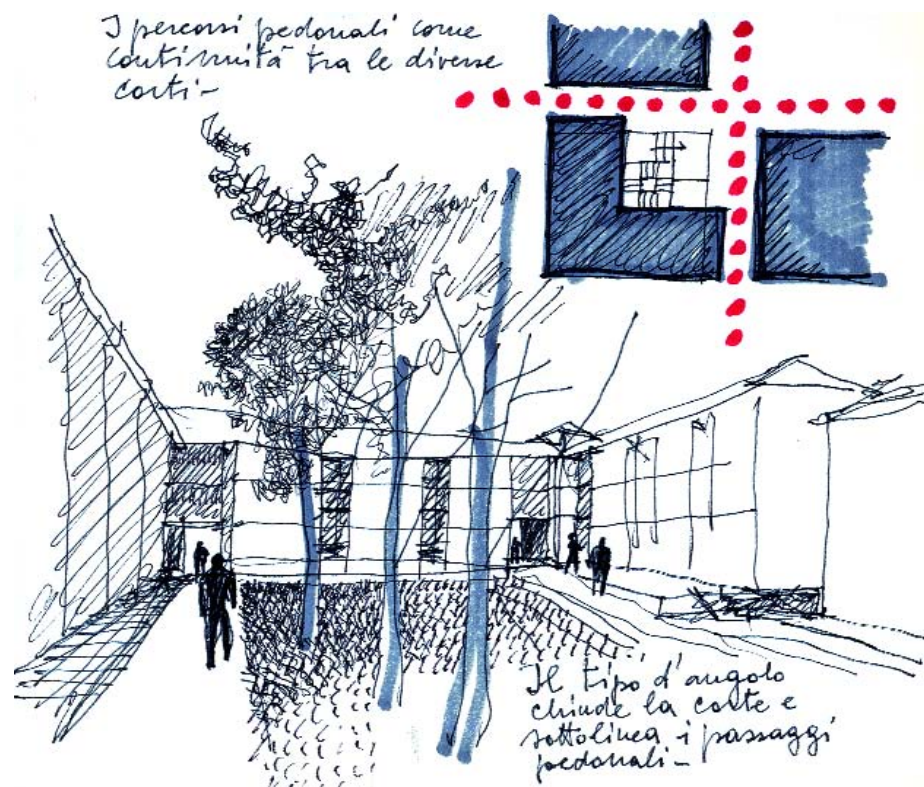 I percorsi pedonali come
continuità tra le diverse
corti -
Il tipo d'angolo
chiude la corte e
sottolinea i passaggi
pedonali -